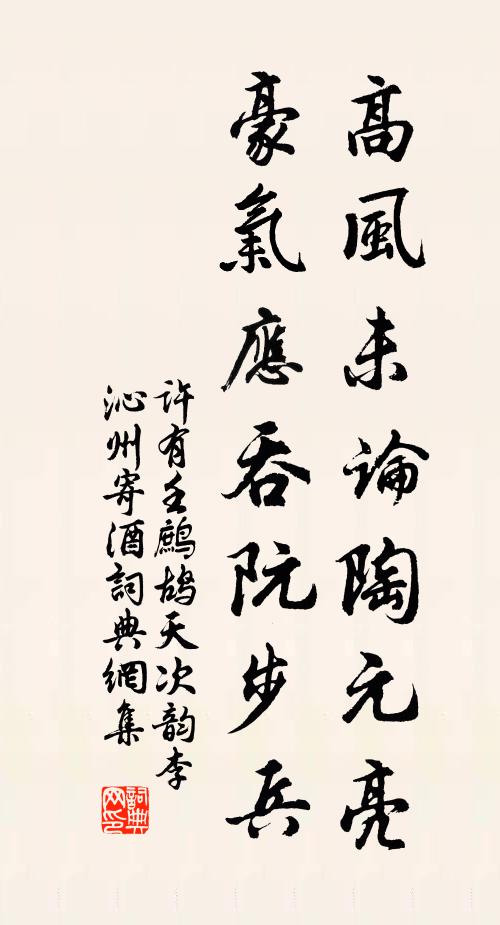 高風未論陶元亮
豪氣應吞阮步兵
許有壬鷓鴣天次韵李
沁州寄酒詞典網集
詞典
网印